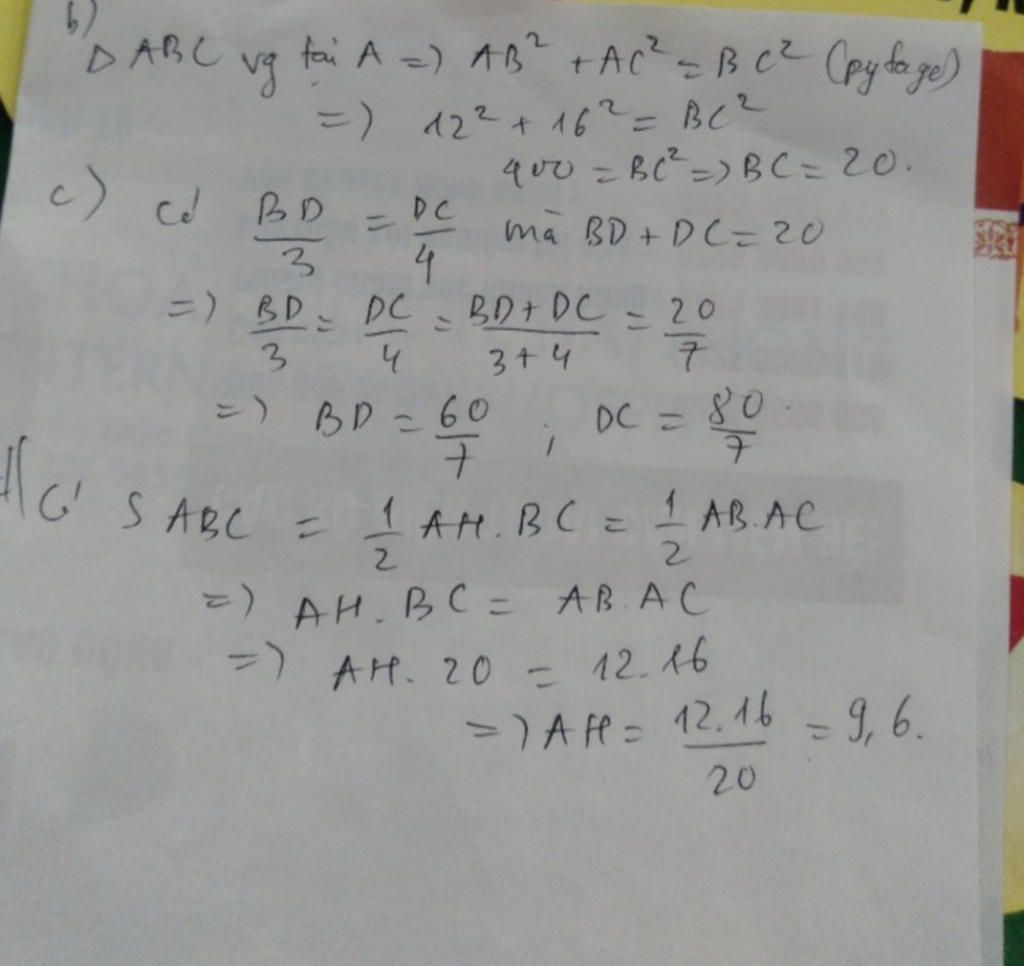 b)
Δ ABC vg tại A => AB² + AC² = BC² (pytago)
=> 12² + 16² = BC²
400 = BC² => BC = 20.
c) Có BD/3 = DC/4 mà BD + DC = 20
=> BD/3 = DC/4 = BD+DC/3+4 = 20/7
=> BD = 60/7 ; DC = 80/7
d/ Có S ABC = 1/2 AH.BC = 1/2 AB.AC
=> AH.BC = AB.AC
=> AH.20 = 12.16
=> AH = 12.16/20 = 9,6.